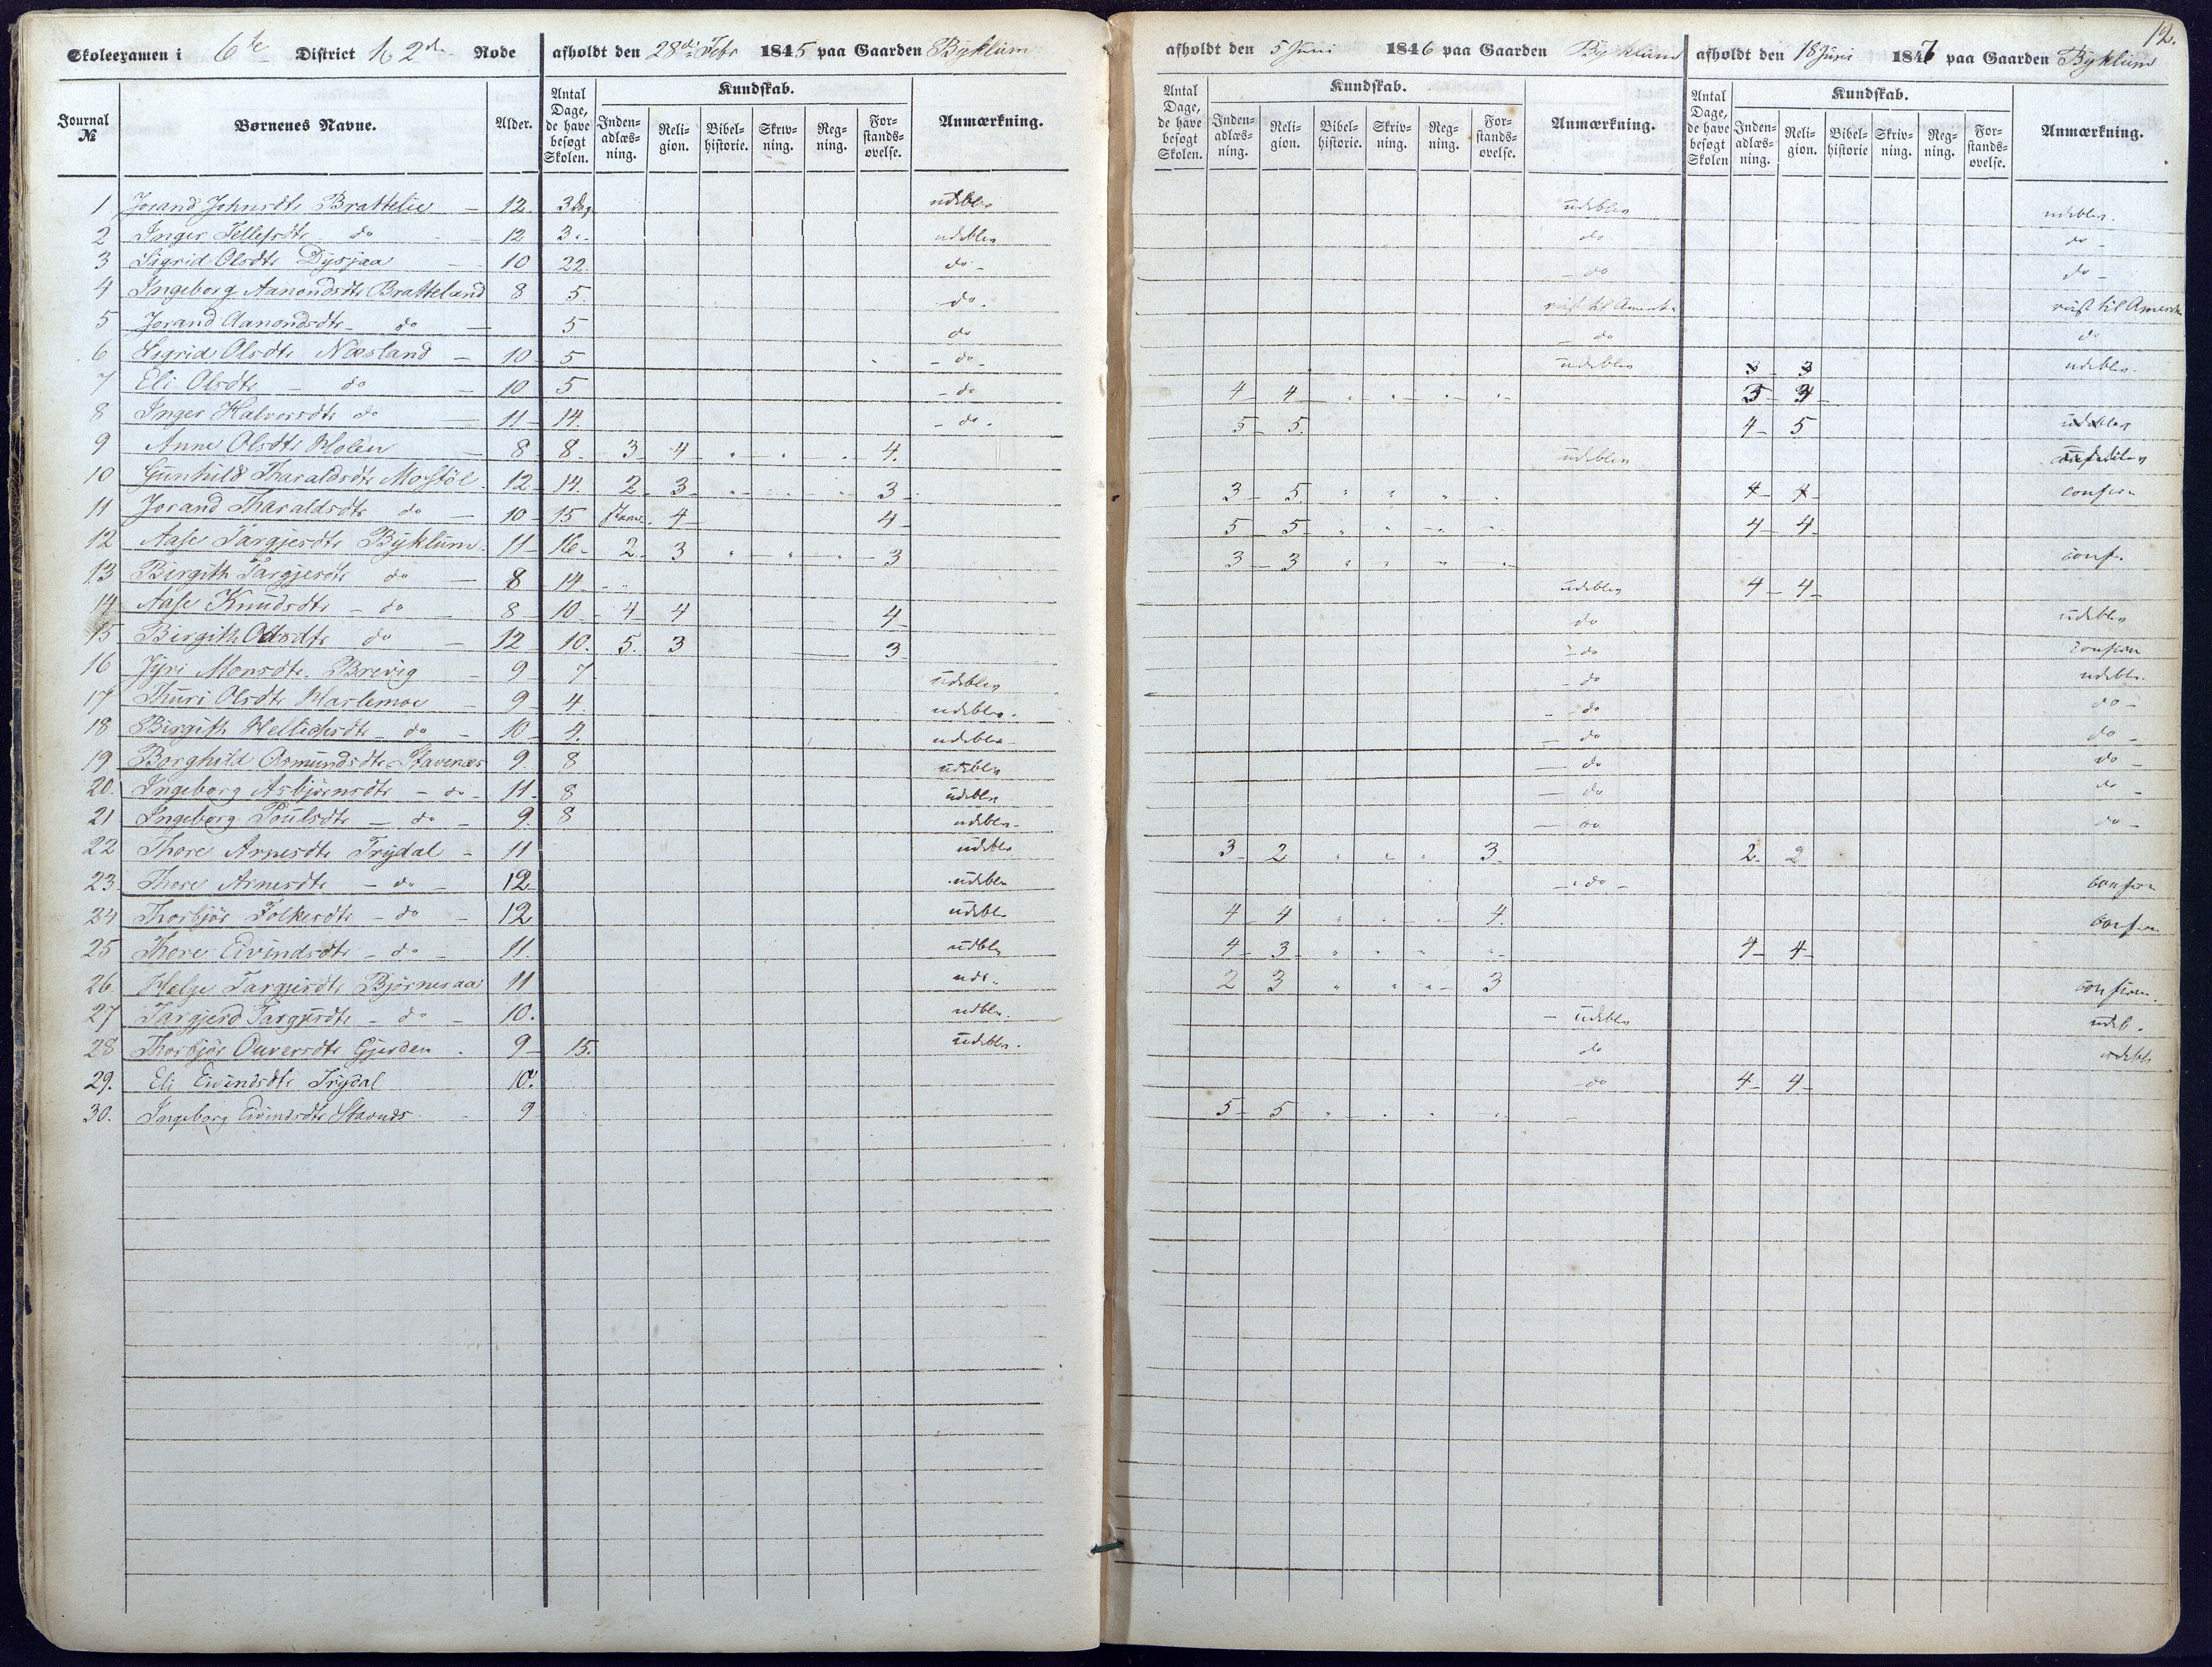 12.
Skoleexamen i 6te District k 2de Rode afholdt den 28de Febr 1845 paa Gaarden Byklum afholdt den 5 Juni 1846 paa Gaarden Byklum afholdt den 18 Juni 1847 paa Gaarden Byklum
Journal № Børnenes Navne. Alder. Antal Dage, de have besøgt Skolen. Kundskab. Inden-adlæs-ning. Reli-gion. Bibel-historie. Skriv-ning. Reg-ning. For-stands-øvelse. Anmærkning. Antal Dage, de have besøgt Skolen. Kundskab. Inden-adlæs-ning. Reli-gion. Bibel-historie. Skriv-ning. Reg-ning. For-stands-øvelse. Anmærkning. Antal Dage, de have besøgt Skolen Kundskab. Inden-adlæs-ning. Reli-gion. Bibel-historie Skriv-ning. Reg-ning. For-stands-øvelse. Anmærkning.
1 Jorand Johnsdtr Brattelie 12. 3 dag udeblev udeblev udeblev.
2 Inger Tellefsdtr do 12 3 udeblev do do
3 Sigrid Olsdtr Dysjaa 10 22. do do do
4 Ingeborg Aanondsdtr Brattelund 8 5. do reist til Amerika reist til Amerika
5 Jorand Aanondsdtr do 5 do do do
6 Sigrid Olsdtr Næsland 10 5 do udeblev 3 3 udeblev
7 Eli Olsdtr do 10 5 do 4 4 3 3
8 Inger Halvorsdtr do 11 14. do 5 5. 4 5 udeblev
9 Anne Olsdtr Holen 8 8 3 4 4. udeblev
10 Gunhild Tharaldsdtr Mosstøl 12 14. 2 3 3 3 5 4 4 confirm
11 Jorand Tharaldsdtr do 10 15 4 4 5 5 4 4
12 Aase Targjersdtr Byklum 11 16 2 3 3 3 3 conf.
13 Birgith Targjersdtr do 8 14 udeblev 4 4
14 Aase Knudsdtr do 8 10 4 4 4 do udeblev
15 Birgith Olsdtr do 12 10. 5. 3 3 do confirm
16 Jyri Monsdtr Brevig 9 7 udeblev do udeblev
17 Thuri Olsdtr Harlemoe 9 4. udeblev do do
18 Birgith Hellichsdtr do 10 4. udeblev do do
19 Borghild Asmundsdtr Stavenæs 9. 8 udeblev do do
20. Ingeborg Asbjørnsdtr do 11. 8 udeblev do do
21 Ingeborg Poulsdtr do 9. 8 udeblev do do
22 Thore Arnesdtr Trydal 11 udeblev 3 2 3 2. 2
23 Thore Arnesdtr do 12 udeblev do confirm
24 Thorbjør Folkesdtr do 12 udeblev 4 4 4. confirm
25 Thore Eivindsdtr do 11. udeblev 4 3 4 4
26 Helge Targjersdtr Bjørnesaa 11 ude. 2 3 3 confirm.
27 Targjerd Targjersdtr do 10. udeblev udeblev udeb.
28 Thorbjør Ouversdtr Gjerden 9 15. udeblev. do udeblev
29. Eli Eivindsdtr Trydal 10. do 4 4
30. Ingeborg Eivindsdtr Stavnes 9 5 5